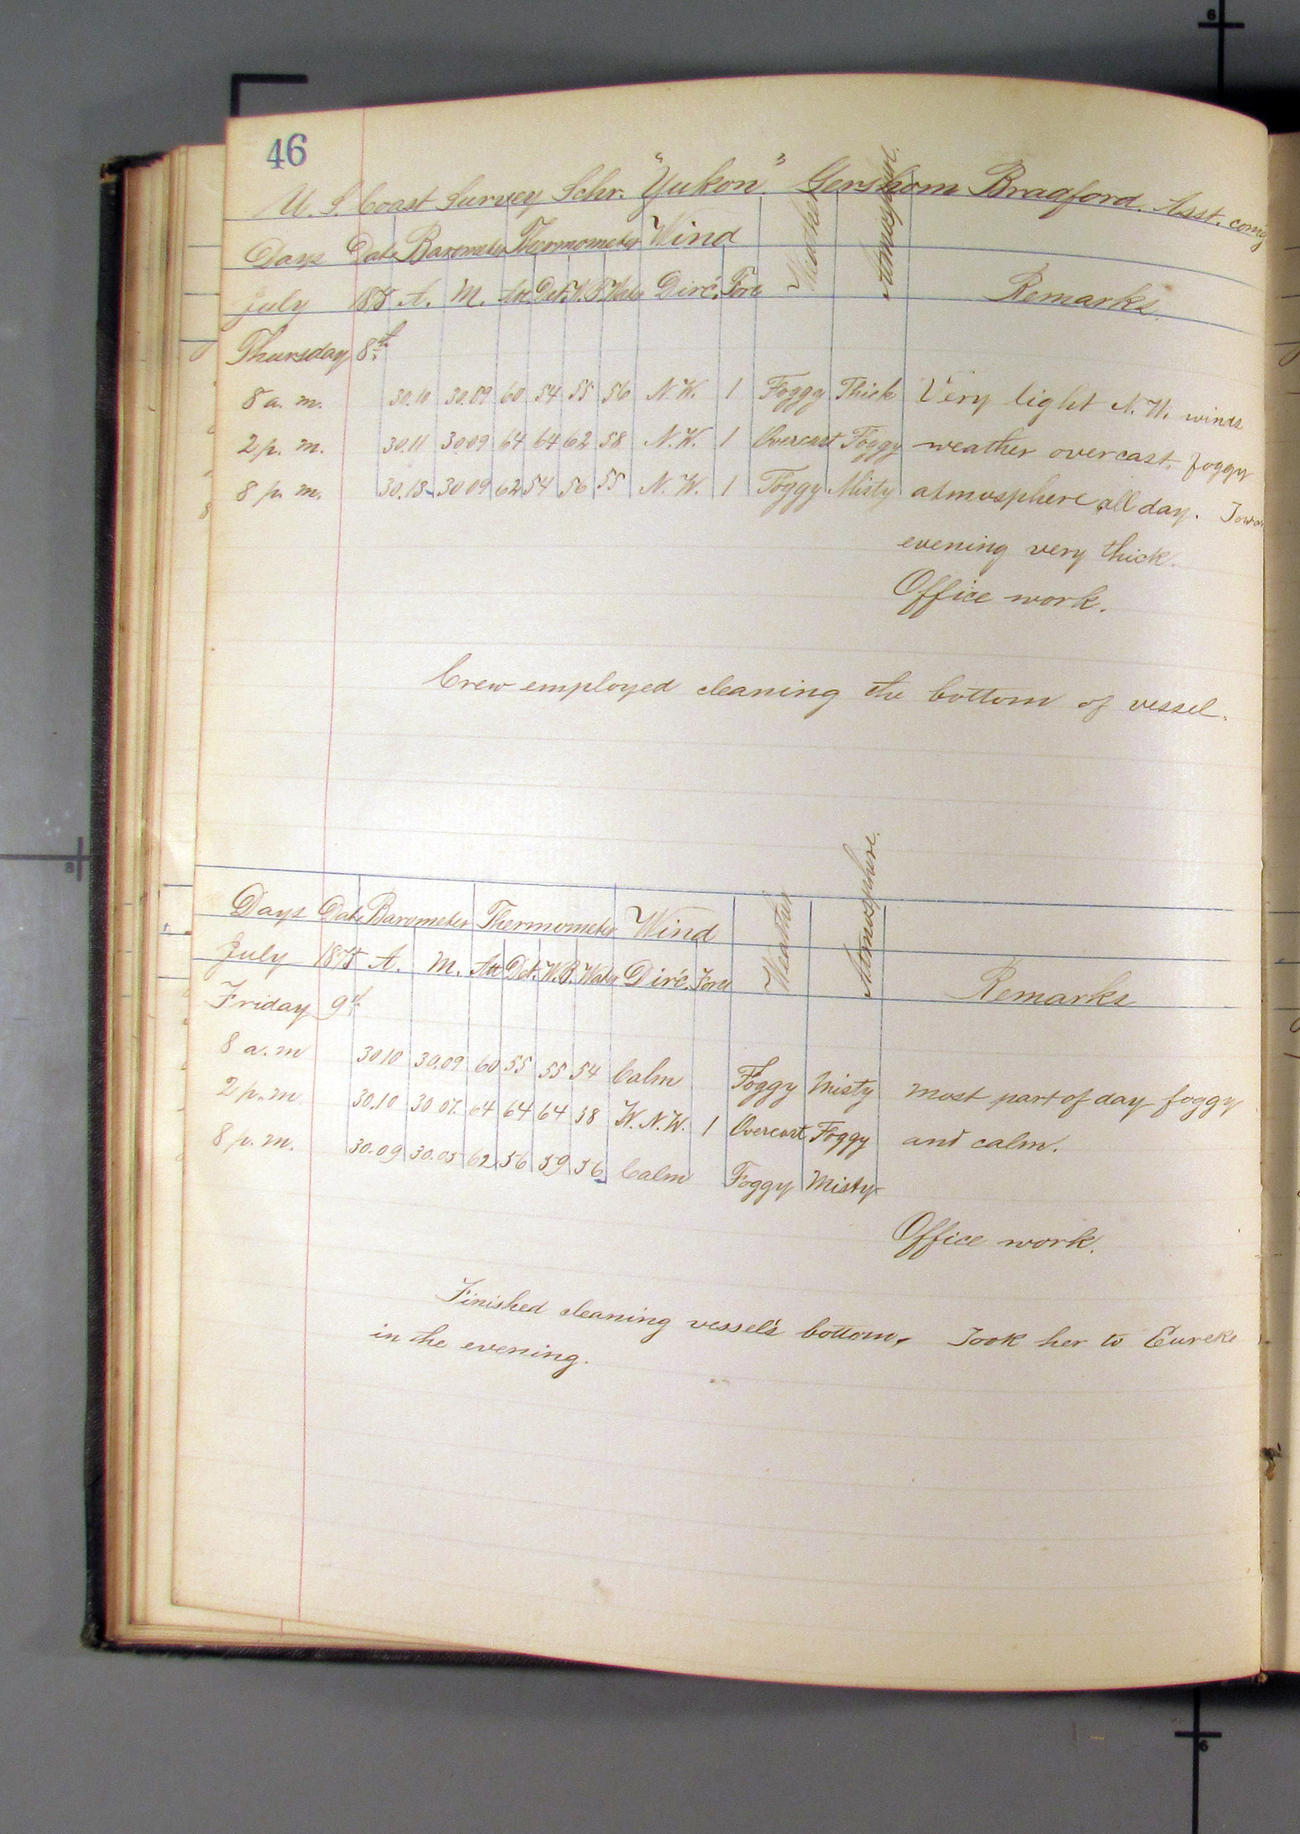 46
U. S. Coast Survey Schr. "Yukon." Gershom Bradford. Asst. comg
Days Date Barometer Thermometer Wind Weather Atmosphere.
July 1875 A. M. Att Det. W.B. Water Direc. Force Remarks.
Thursday 8th
8 a. m. 30.10 30.09 60 54 55 56 N. W. 1 Foggy Thick Very light N. W. winds
2 p. m. 30.11 30.09 64 64 62 58 N. W. 1 Overcast Foggy weather overcast, foggy
8 p. m. 30.13 30.09 62 54 56 55 N. W. 1 Foggy Misty atmosphere all day.
evening very thick.
Office work.
Crew employed cleaning the bottom of vessel.
Days Date Barometer Thermometer Wind Weather Atmosphere.
July 1875 A. M. Att Det. W.B. Water Direc. Force Remarks
Friday 9th
8 a. m 30.10 30.09 60 55 55 54 Calm Foggy Misty most part of day foggy
2 p. m. 30.10 30.07 64 64 64 58 W. N. W. 1 Overcast Foggy and calm.
8 p. m. 30.09 30.05 62 56 59 56 Calm Foggy Misty
Office work.
Finished cleaning vessel's bottom. Took her to Eureka
in the evening.